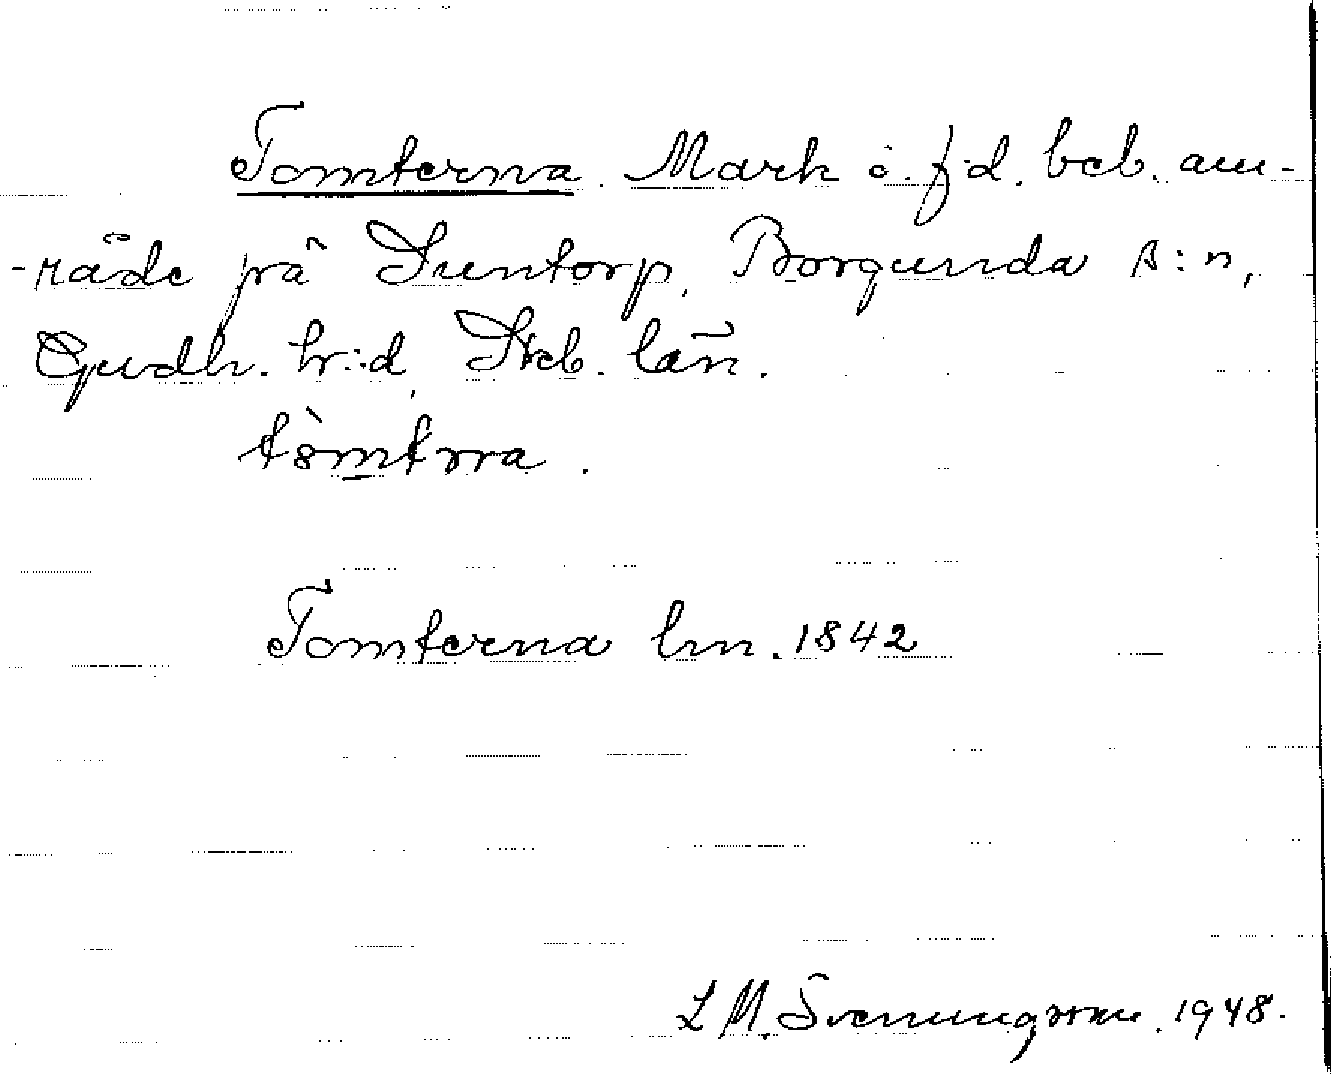 Tomterna. Mark o. f.d. beb. om-
-råde på Suntorp, Borgunda s:n,
Gudh. hr:d, Skb. län.
tòmtrra.
Tomterna lm. 1842
L M. Svenungsson. 1948.